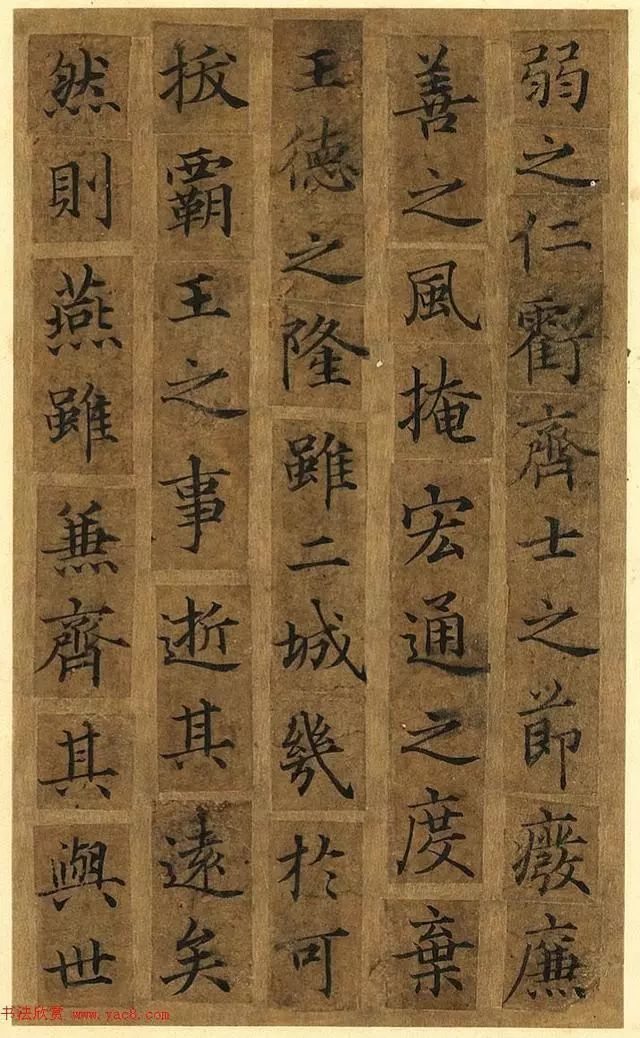 弱之仁虧齊士之莭癈廉
善之風掩宏通之度棄
王德之隆雖二城幾扵可
拔霸王之事逝其遠矣
然則燕雖兼齊其與世
书法欣赏 www.yac8.com